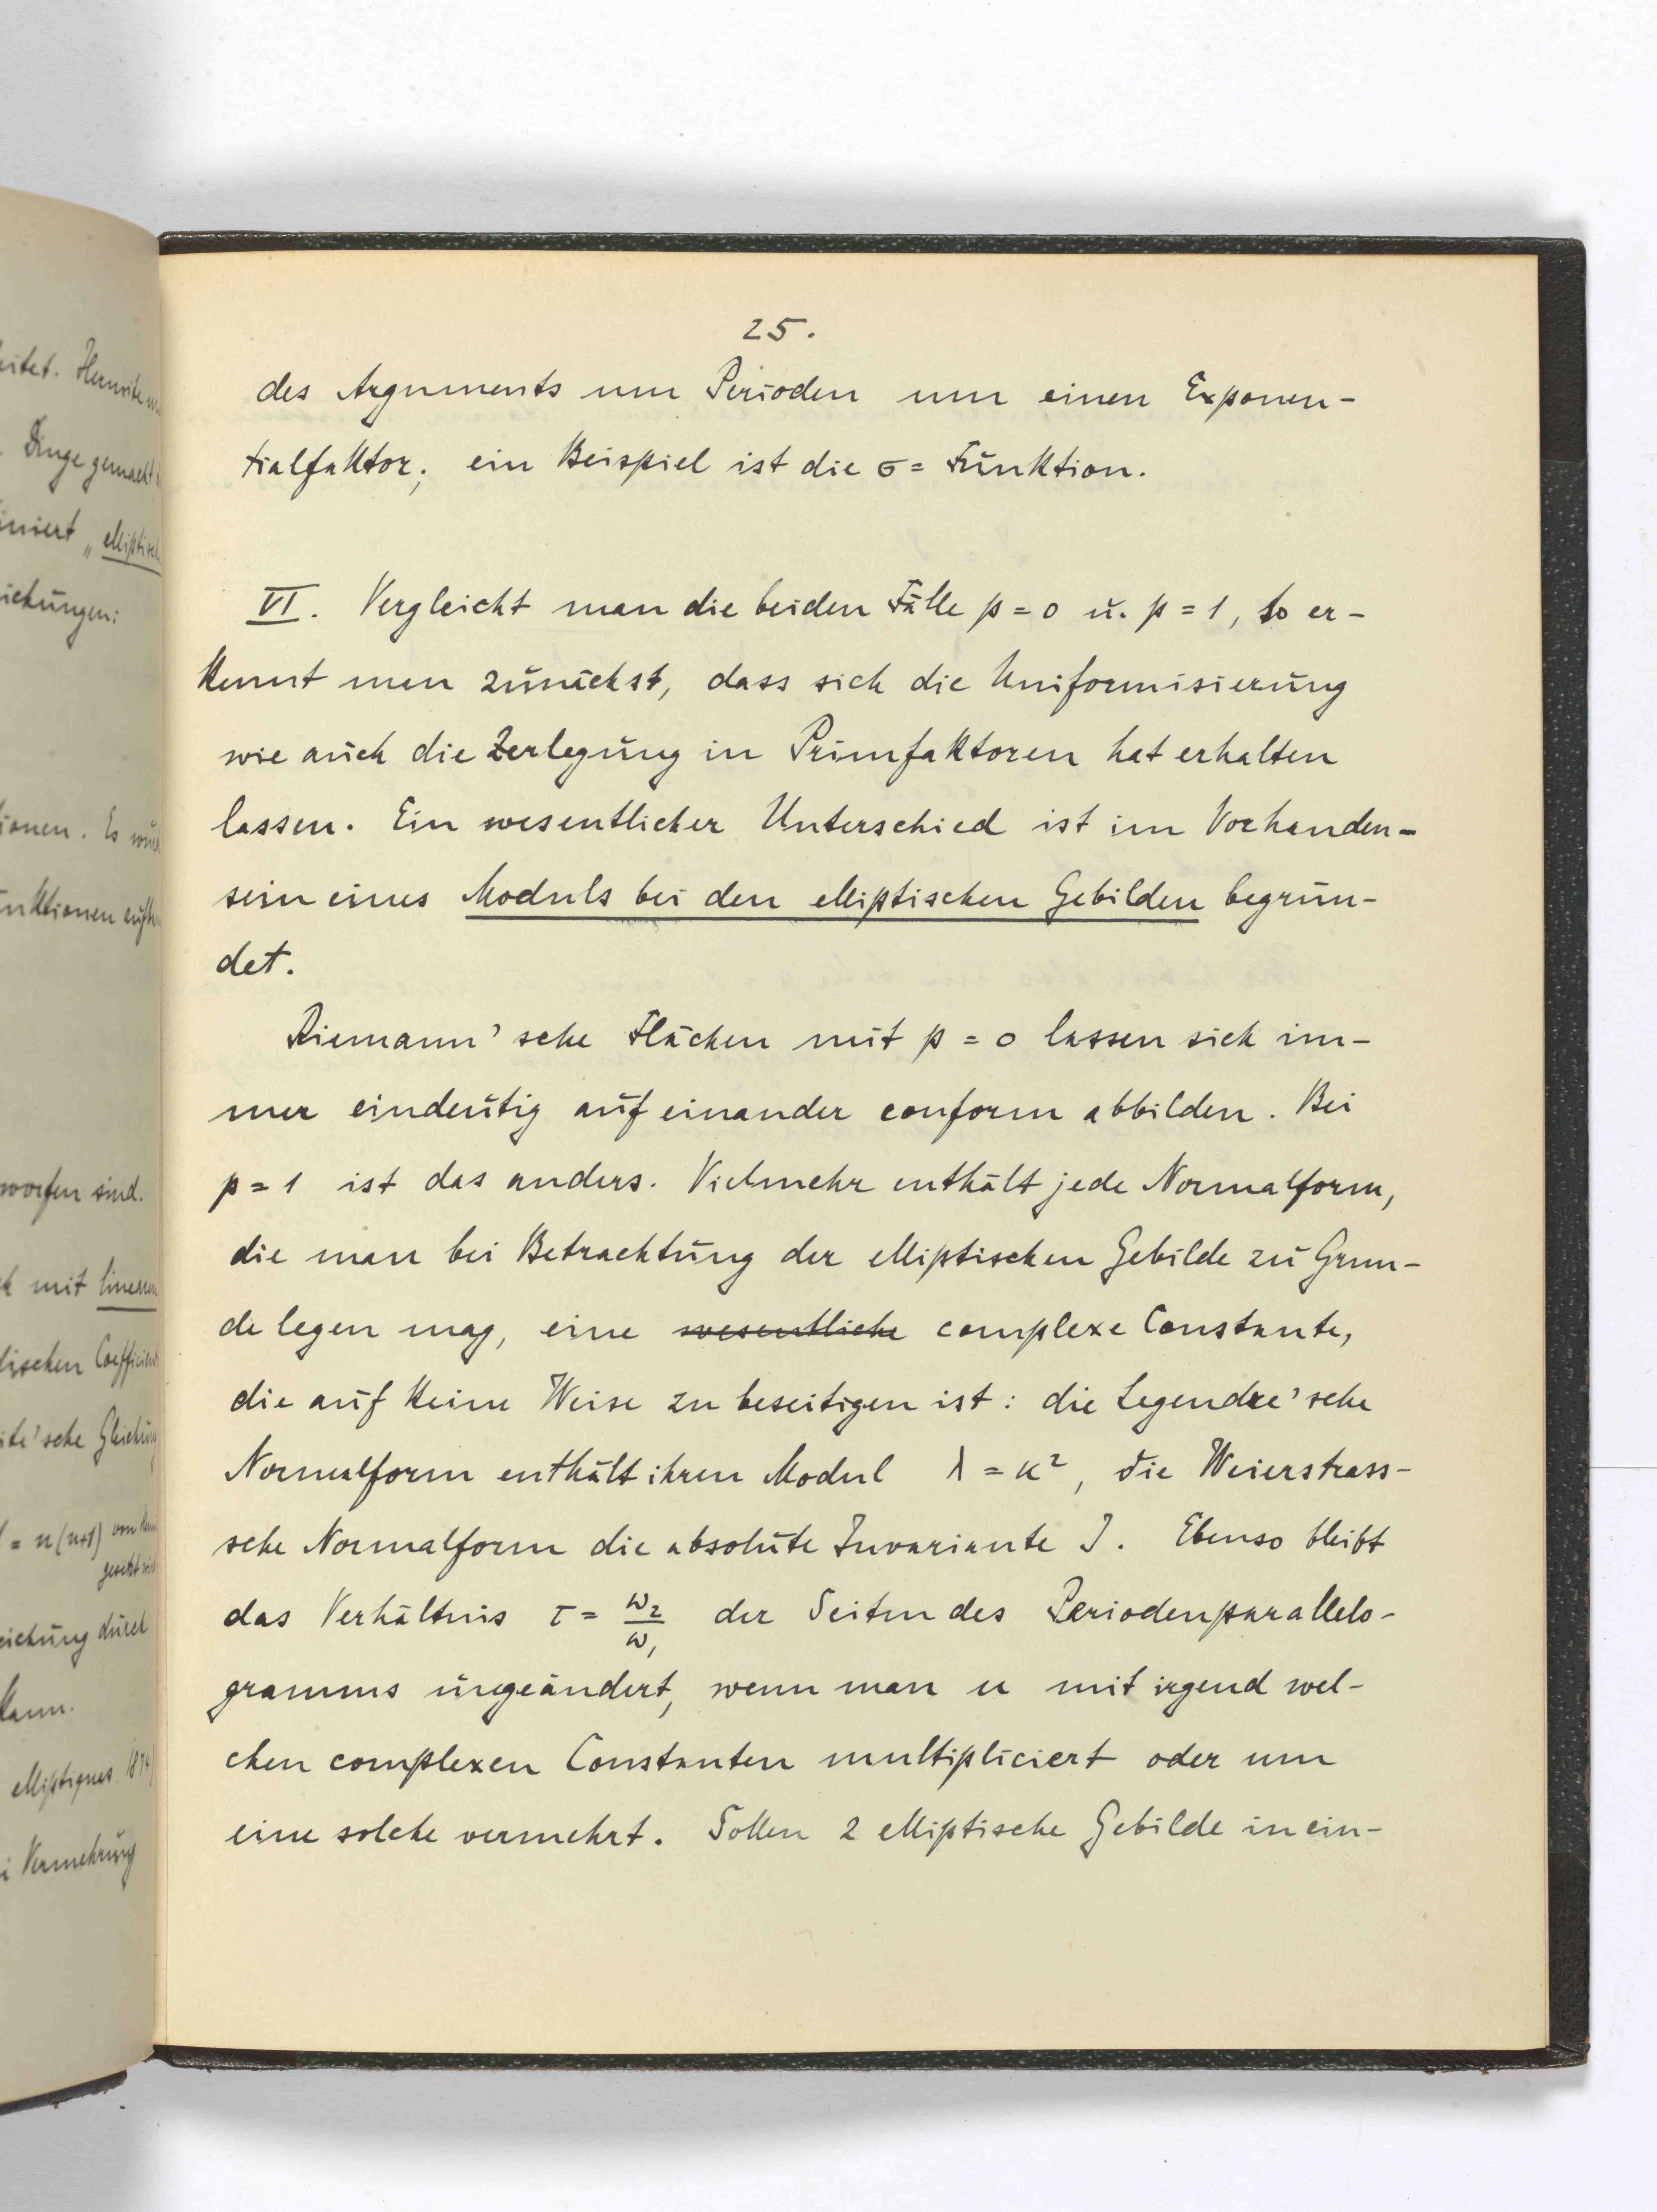 eitet. Hermite
25.
des Arguments um Perioden um einen Exponen-
Dinge gemacht
tialfaktor; ein Beispiel ist die σ= Funktion.
niert „ elliptisch
ichungen:
VI. Vergleicht man die beiden Fälle p = 0 u. p = 1, so er-
kennt man zunächst, dass sich die Uniformisierung
wie auch die Zerlegung in Primfaktoren hat erhalten
ionen. Es
lassen. Ein wesentlicher Unterschied ist im Vorhanden-
nktionen
sein eines Moduls bei den elliptischen Gebilden begrün-
det.
Riemann'sche Flächen mit p = 0 lassen sich im-
mer eindeutig auf einander conform abbilden. Bei
worfen sind.
p = 1 ist das anders. Vielmehr enthält jede Normalform,
die man bei Betrachtung der elliptischen Gebilde zu Grun-
mit linearen
de legen mag, eine wesentliche complexe Constante,
ischen Coefficien
die auf keine Weise zu beseitigen ist: die Legendre'sche
ite'sche Gleichung
Normalform enthält ihren Modul λ = κ², die Weierstrass-
= n(n+1) von
gesetzt
sche Normalform die absolute Invariante J. Ebenso bleibt
das Verhältnis τ = ω₂/ω₁ der Seiten des Periodenparallelo-
eichung durch
gramms ungeändert, wenn man u mit irgend wel-
kann.
chen complexen Constanten multipliciert oder um
elliptiques. 1874
eine solche vermehrt. Sollen 2 elliptische Gebilde in ein-
i Vermehrung